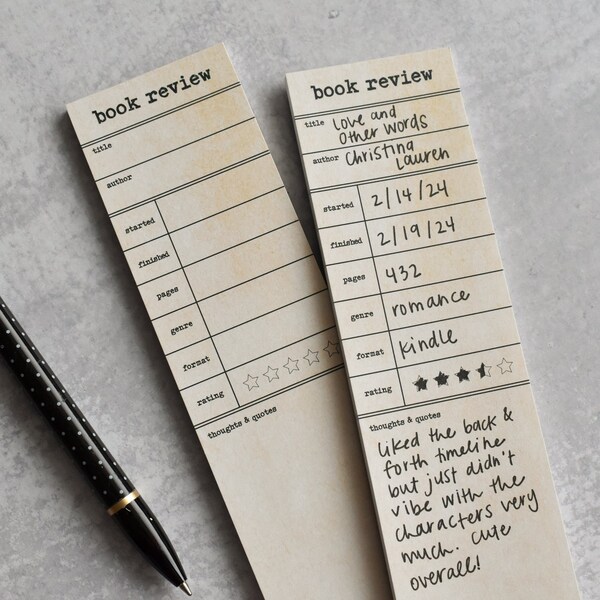 book review
title
author
started
finished
pages
genre
format
rating
thoughts & quotes
book review
title Love and
Other Words
author Christina
Lauren
started 2/14/24
finished 2/19/24
pages 432
genre romance
format kindle
rating
thoughts & quotes
liked the back &
forth timeline
but just didn't
vibe with the
characters very
much. Cute
overall!